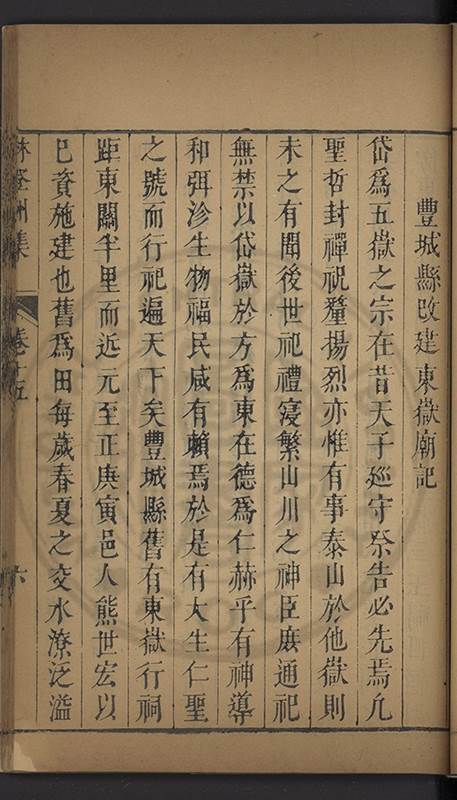 豐城縣改建東嶽廟記
岱爲五嶽之宗在昔天子廵守祭告必先焉凢
聖哲封禪祝釐揚烈亦惟有事泰山於他嶽則
未之有聞後世祀禮寖繁山川之神臣庶通祀
無禁以岱嶽於方爲東在德爲仁赫乎有神導
和弭沴生物福民咸有賴焉於是有大生仁聖
之號而行祀遍天下矣豐城縣舊有東嶽行祠
距東關半里而近元至正庚寅邑人熊世宏以
巳資施建也舊爲田每歲春夏之交水潦泛溢
林登州集
卷十五
六